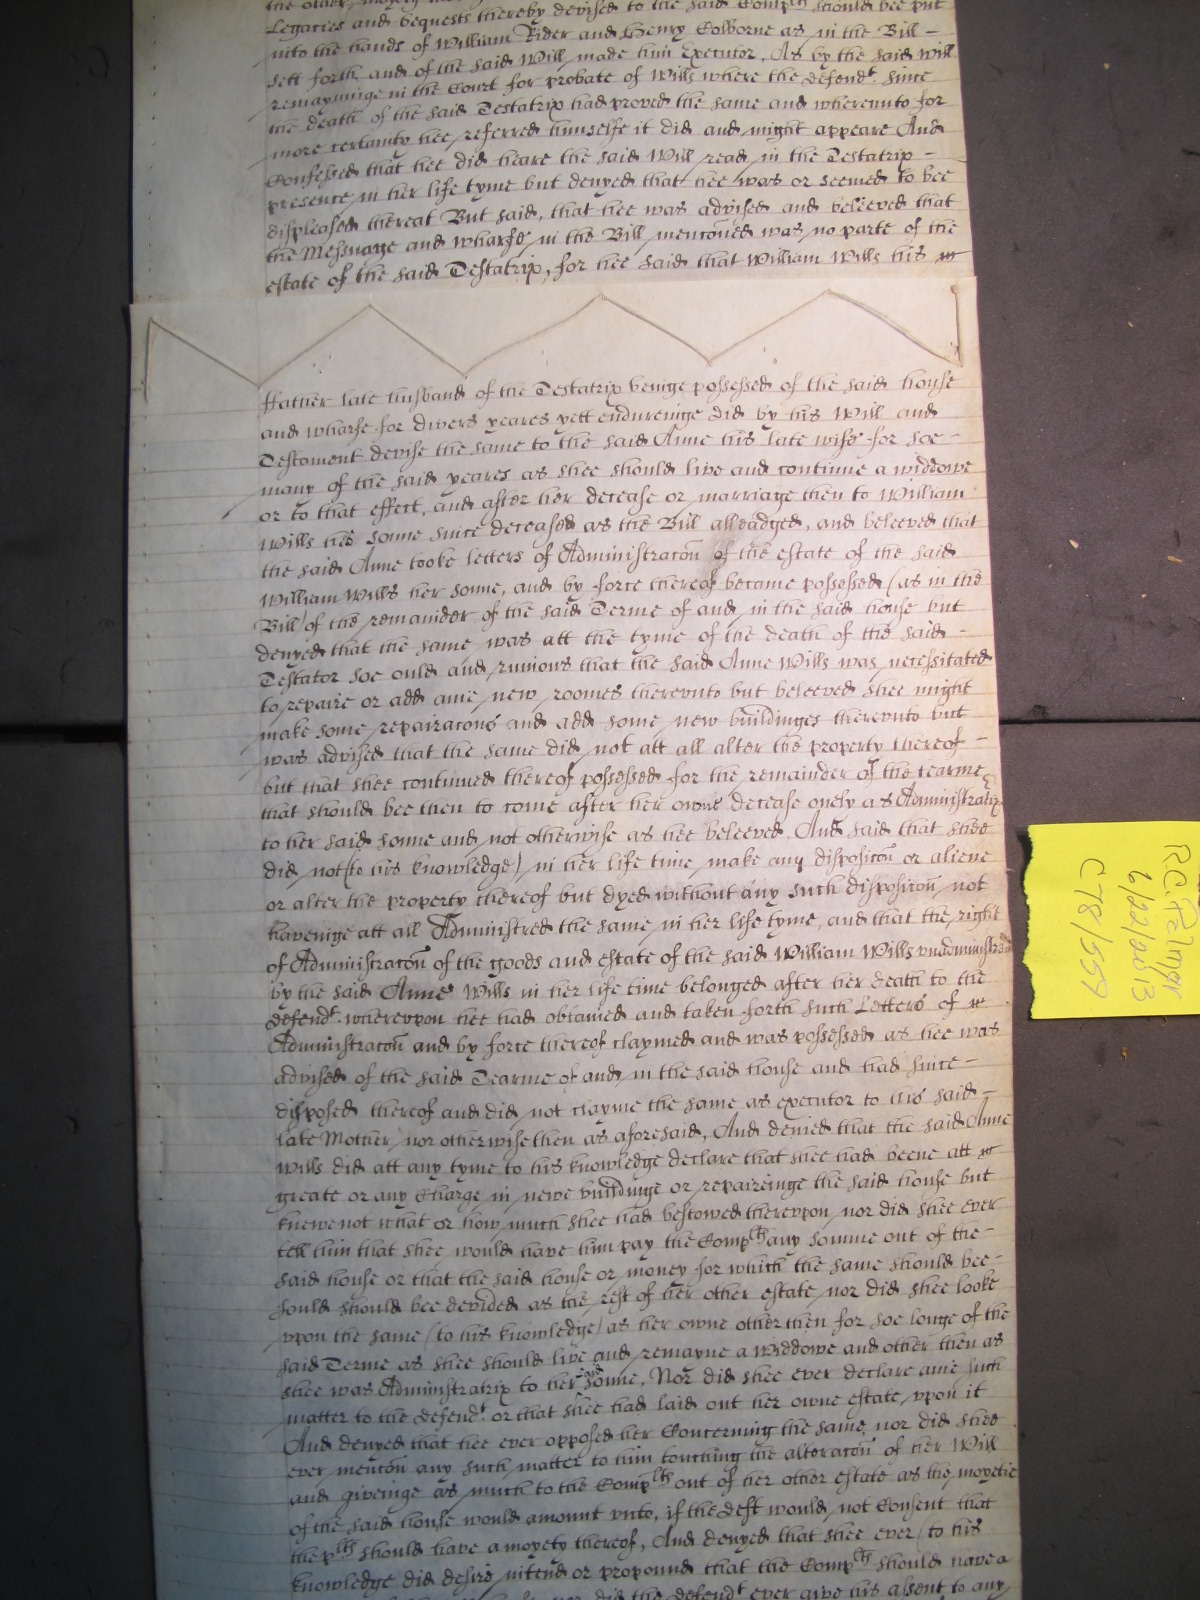 the other moyety
Legacies and bequests thereby devised to the said Complts should bee put
into the hands of William Rider and Henry Colborne as in the Bill -
sett forth and of the said Will made him Executor, As by the said Will
remayninge in the Court for probate of Wills where the defendt since
the death of the said Testatrix had proved the same and wherevnto for
more certainty hee referred himselfe it did and might appeare And
Confessed that hee did heare the said Will read in the Testatrix -
presence in her life tyme but denyed that hee was or seemed to bee
displeased thereat But said, that hee was advised and beleeved that
the Messuage and wharfe in the Bill mencõned was no parte of the
estate of the said Testatrix, for hee said that William Wills his
ffather late husband of the Testatrix beinge possessed of the said house
and wharfe for divers yeares yett endureinge did by his Will and
Testament devise the same to the said Anne his late wife for soe -
many of the said yeares as shee should live and continue a widdowe
or to that effect, and after her decease or marriage then to William
Wills his sonne since deceased as the Bill alleadged, and beleeved that
the said Anne tooke letters of Administracõn of the estate of the said
William Wills her sonne, and by force thereof became possessed (as in the
Bill) of the remainder of the said Terme of and in the said house but
denyed that the same was att the tyme of the death of the said -
Testator soe ould and ruinous that the said Anne Wills was necessitated
to repaire or add anie new roomes therevnto but beleeved shee might
make some repairacõns and add some new buildinges therevnto but
was advised that the same did not att all alter the property thereof -
but that shee continued thereof possessed for the remainder of the tearme
that should bee then to come after her owne decease onely as Administratrix
to her said sonne and not otherwise as hee beleeved, And said that shee
did not (to his knowledge) in her life time make any disposicõn or aliene
or alter the property thereof but dyed without any such disposicõn not
haveinge att all Administred the same in her life tyme, and that the right
of Administracõn of the goods and estate of the said William Wills vnadministred
by the said Anne Wills in her life time belonged after her death to the
defendt wherevpon hee had obtained and taken forth such Letters of
Administracõn and by force thereof claymed and was possessed as hee was
advised of the said Tearme of and in the said house and had since -
disposed thereof and did not clayme the same as executor to his said -
late Mother nor otherwise then as aforesaid, And denied that the said Anne
Wills did att any tyme to his knowledge declare that shee had beene att
greate or any Charge in newe buildinge or repaireinge the said house but
knewe not what or how much shee had bestowed therevpon nor did shee ever
tell him that shee would have him pay the Complts any somme out of the -
said house or that the said house or money for which the same should bee -
sould should bee devided as the rest of her other estate nor did shee looke
vpon the same (to his knowledge) as her owne other then for soe longe of the
said Terme as shee should live and remayne a widdowe and other then as
shee was Administratrix to her said sonne, Nor did shee ever declare anie such
matter to the defendt or that shee had laid out her owne estate vpon it
And denyed that hee ever opposed her Concerning the same, nor did shee
ever mencõn any such matter to him touching the alteracõn of her Will
and giveinge as much to the Complts out of her other estate as the moyetie
of the said house would amount vnto, if the deft would not Consent that
the plts should have a moyety thereof, And denyed that shee ever (to his
knowledge did desire intend or propound that the Complts should have a
nor did the defendt ever give his assent to any
R.C. Palmer
6/22/2013
C78/559